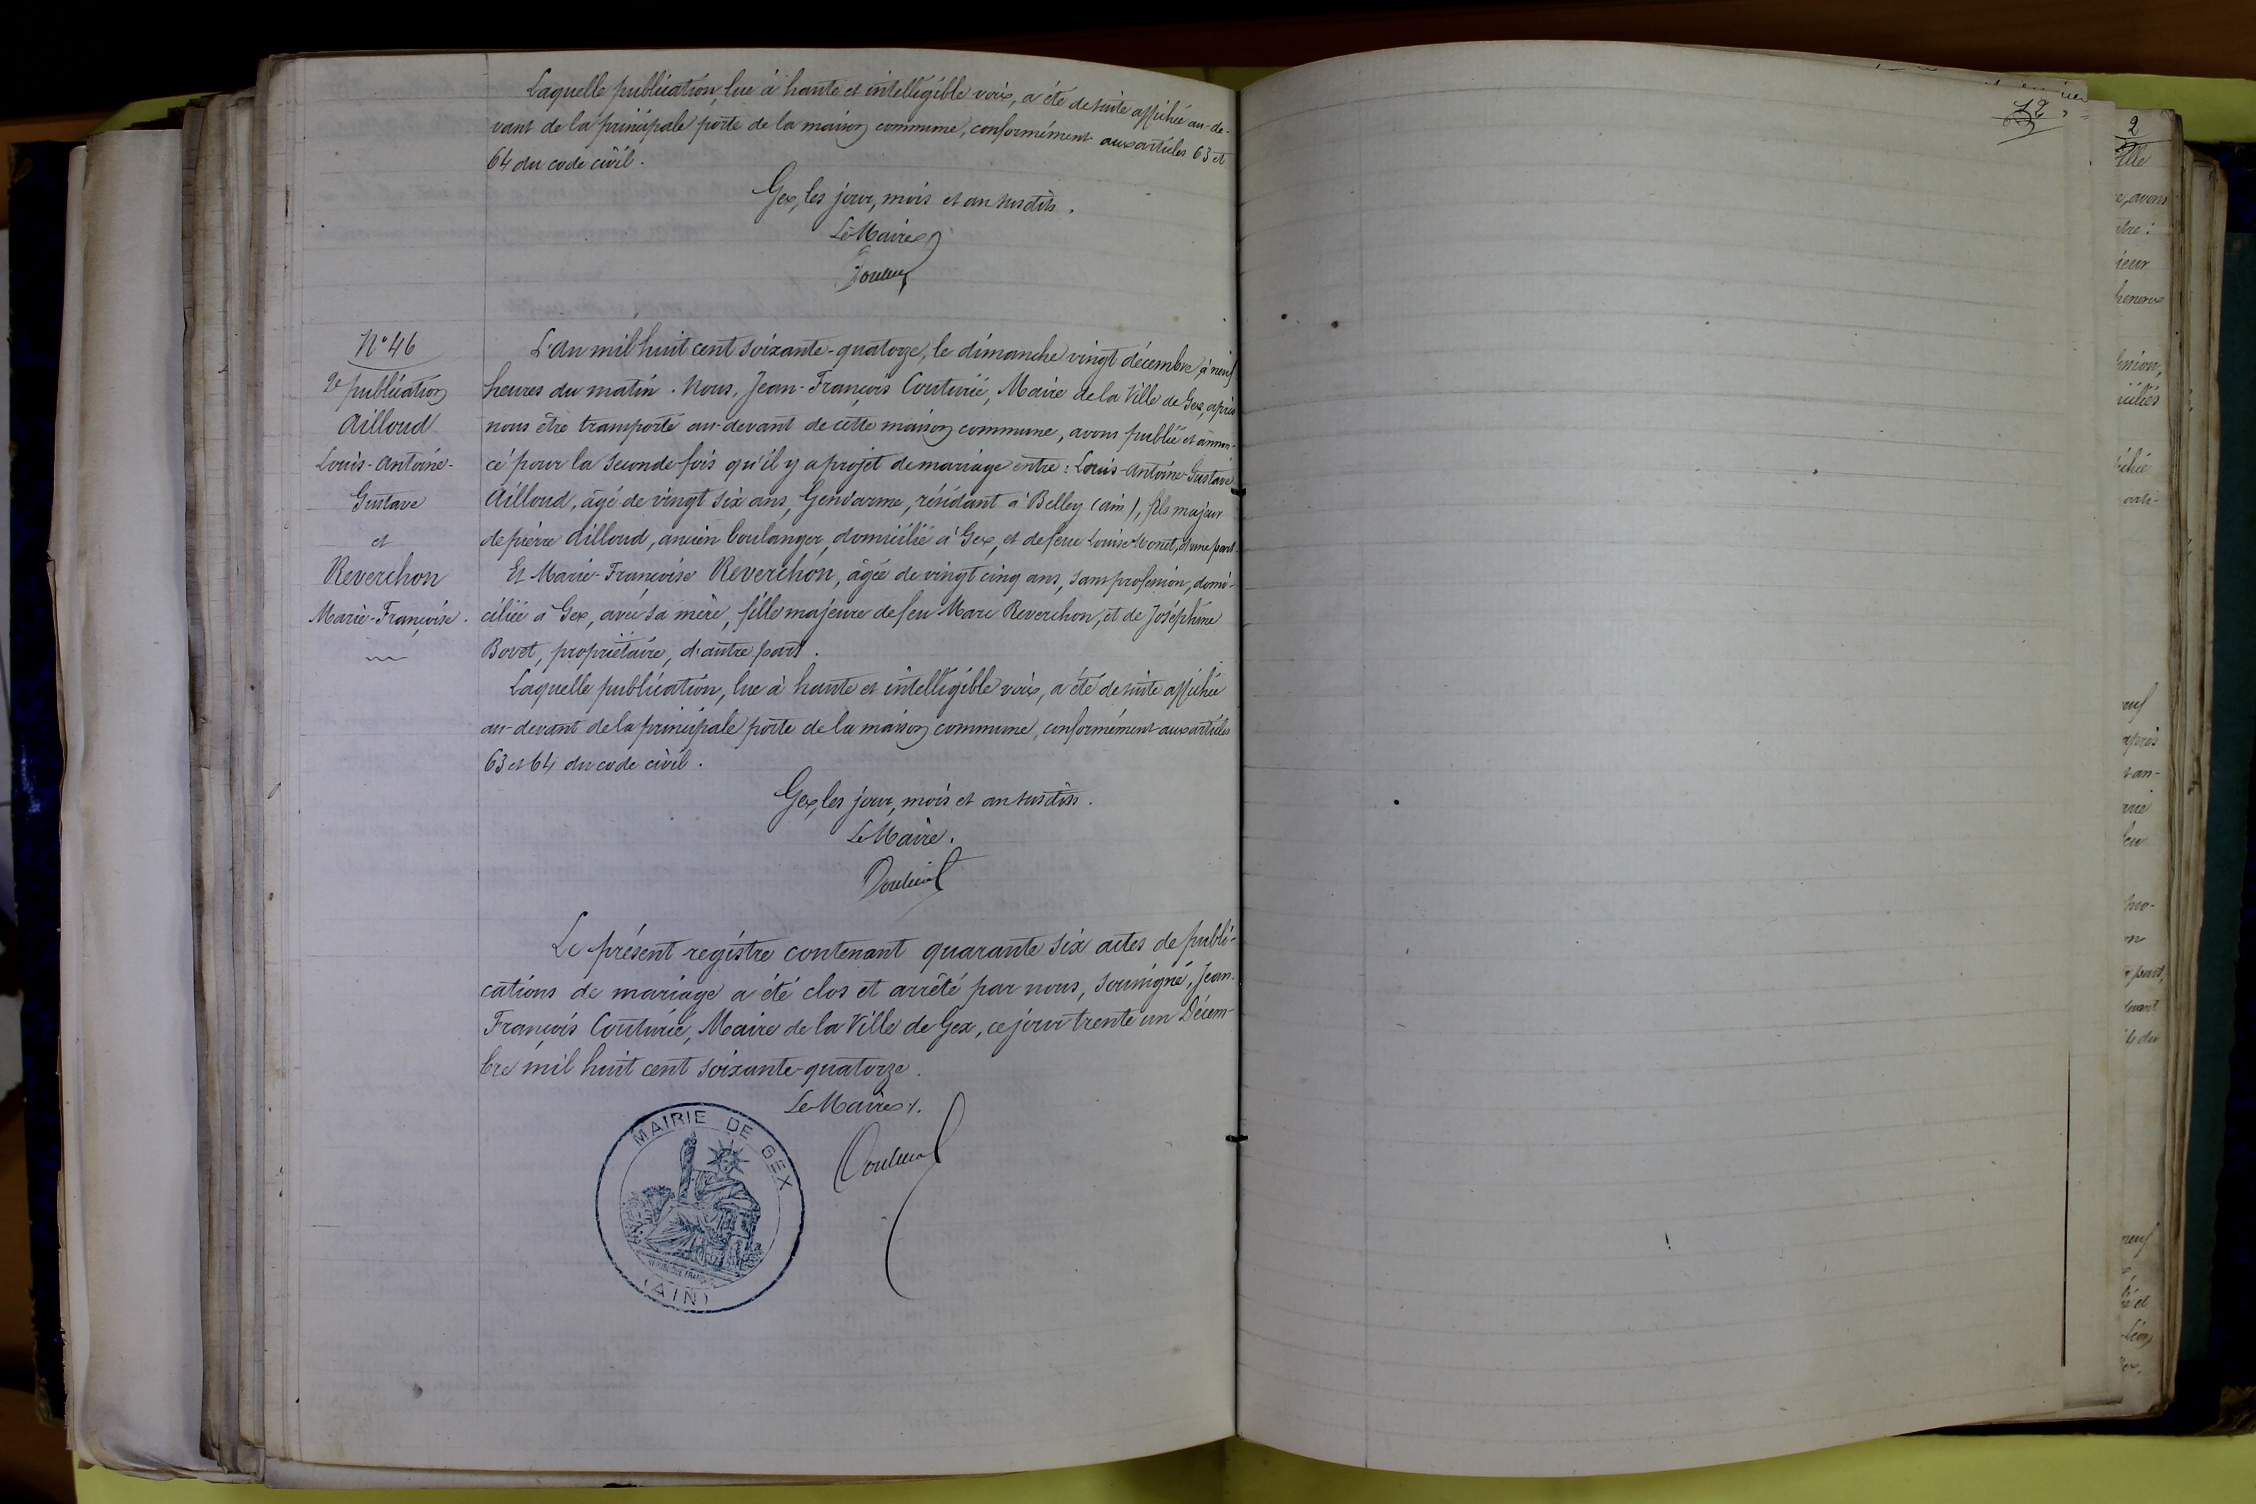 Laquelle publication, lue à haute et intelligible voix, a été de suite affichée au-de-
vant de la principale porte de la maison commune, conformément aux articles 63 et
64 du code civil.
Gex, les jour, mois et an susdits.
Le Maire
N° 46
2e publication
Ailloud
Louis-Antoine-
Gustave
et
Reverchon
Marie-Françoise.
L'An mil huit cent soixante-quatorze, le dimanche vingt décembre, à neuf
heures du matin. Nous, Jean-François Couturié, Maire de la Ville de Gex, après
nous être transporté au-devant de cette maison commune, avons publié et annon-
cé pour la seconde fois qu'il y a projet de mariage entre : Louis-Antoine-Gustave
Ailloud, âgé de vingt six ans, Gendarme, résidant à Belley (ain), fils majeur
de pierre Ailloud, ancien boulanger, domicilié à Gex, et de feue Louise Monet, d'une part.
Et Marie-Françoise Reverchon, âgée de vingt cinq ans, sans profession, domi-
ciliée à Gex, avec sa mère, fille majeure de feu Marc Reverchon, et de Joséphine
Bovet, propriétaire, d'autre part.
Laquelle publication, lue à haute et intelligible voix, a été de suite affichée
au-devant de la principale porte de la maison commune, conformément aux articles
63 et 64 du code civil.
Gex, les jour, mois et an susdits.
Le Maire.
Le présent registre contenant quarante six actes de publi-
cations de mariage a été clos et arrêté par nous, soussigné, Jean-
François Couturié, Maire de la Ville de Gex, ce jour trente un Décem-
bre mil huit cent soixante-quatorze.
Le Maire
MAIRIE DE GEX
(AIN)
12
2